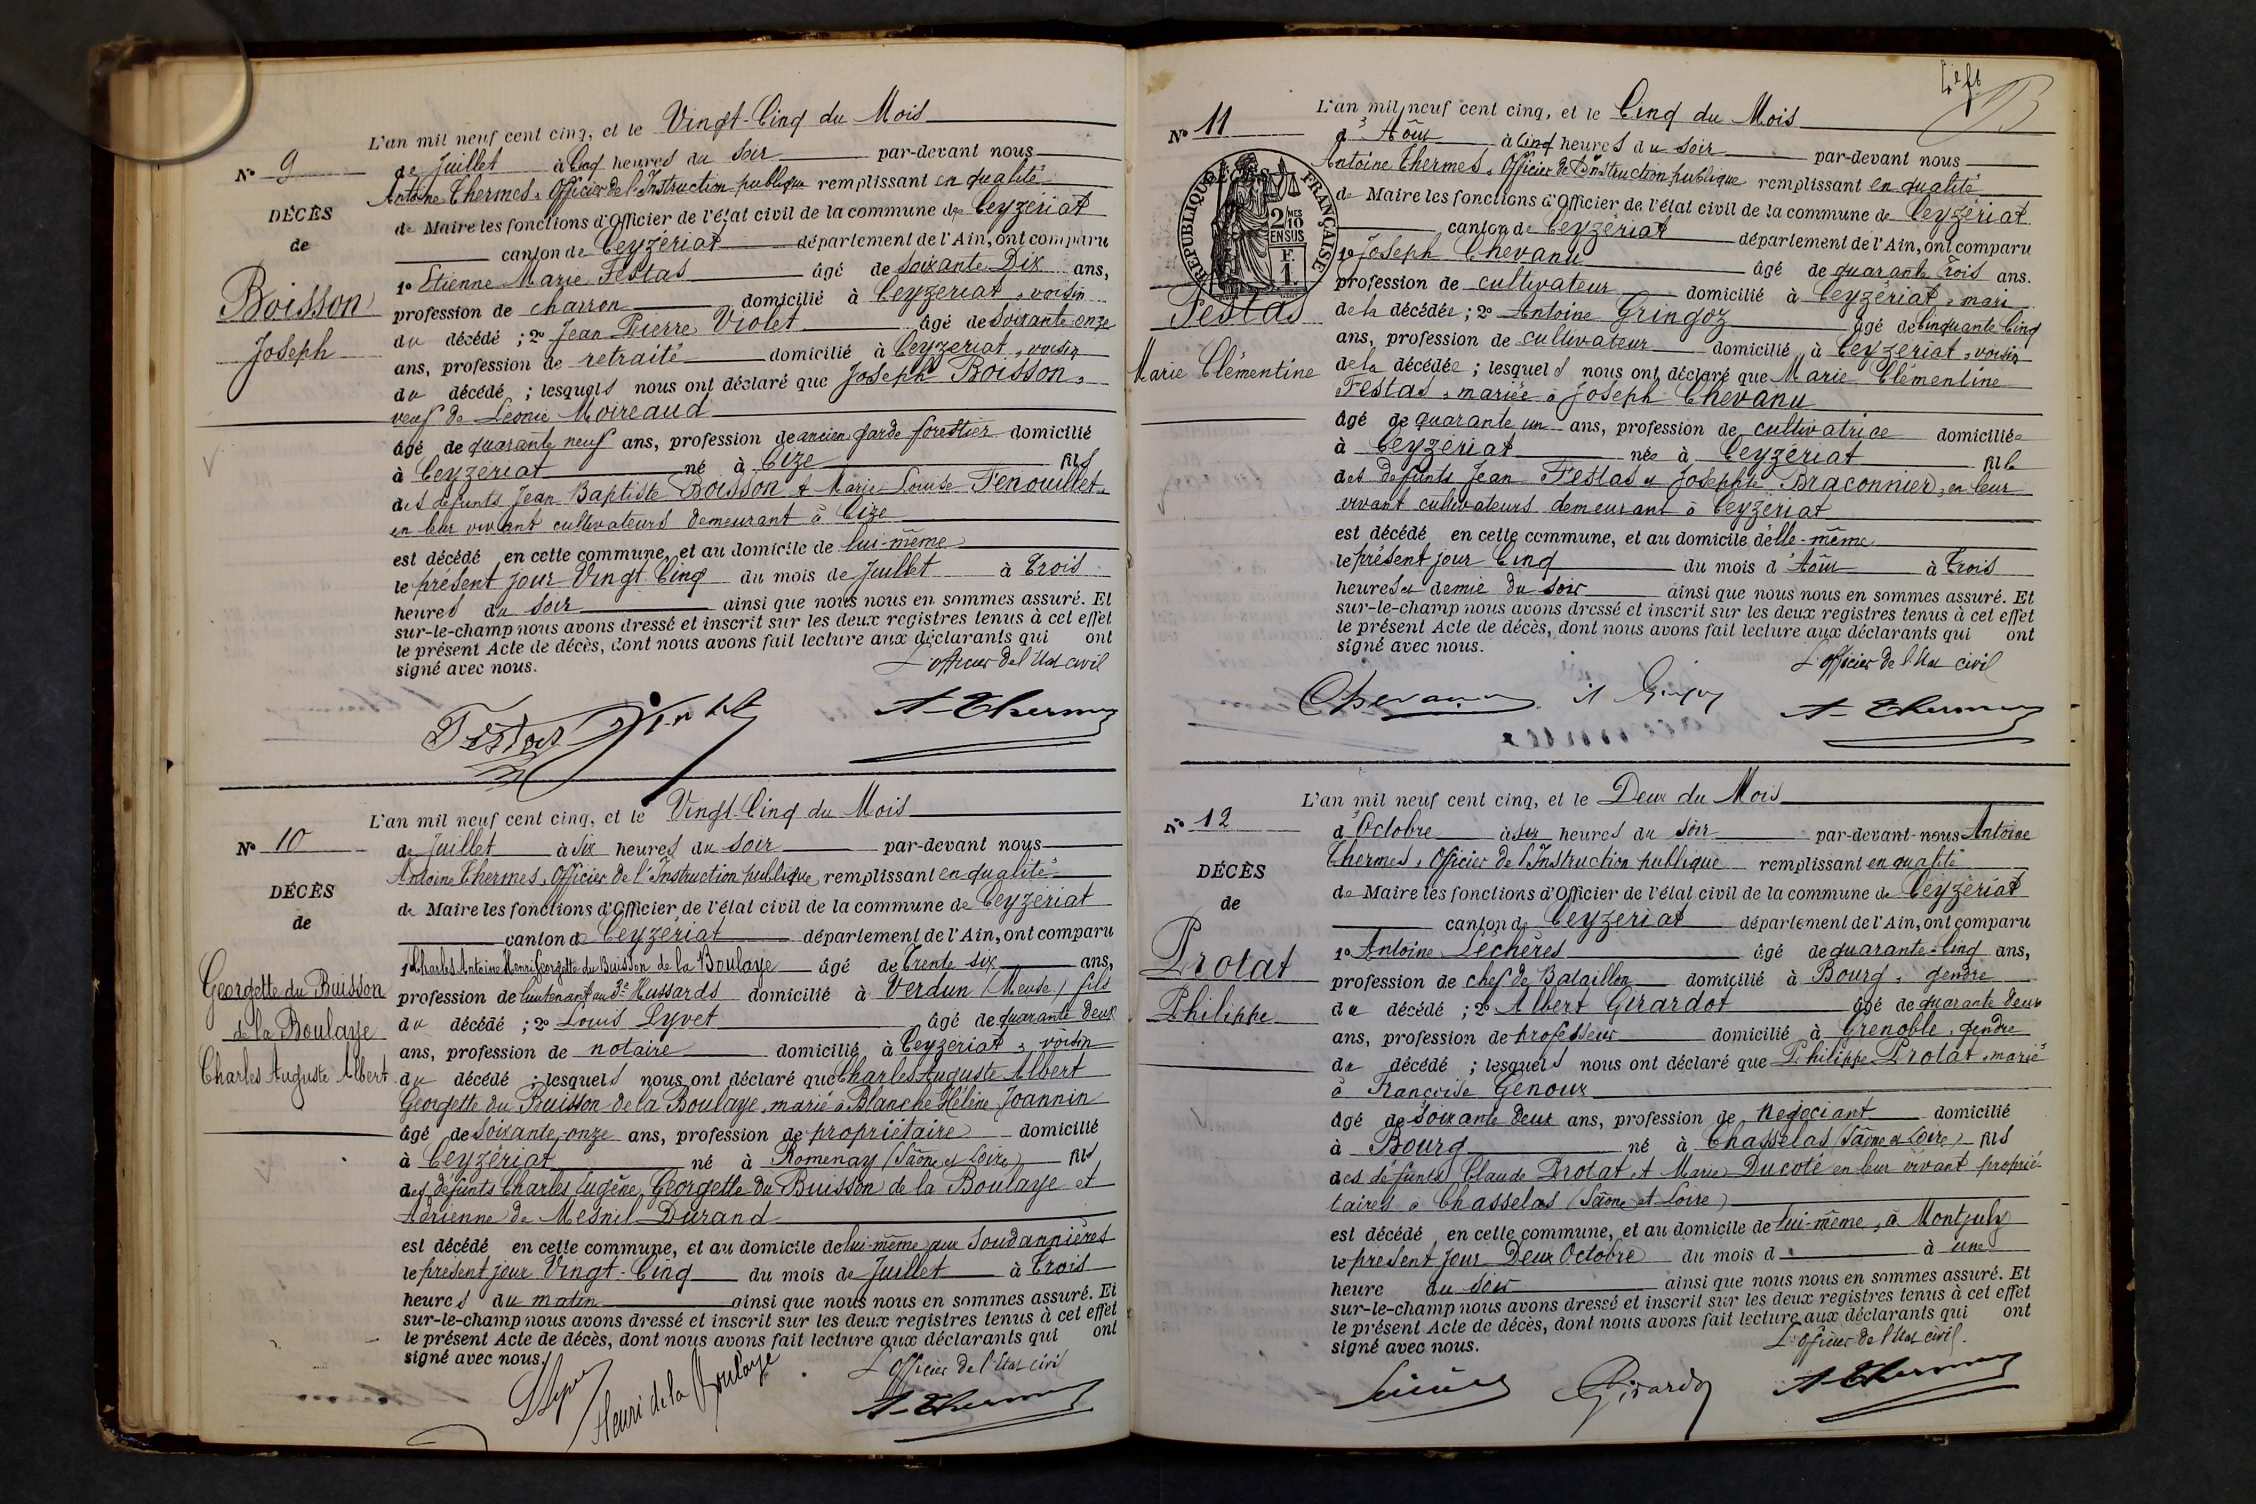 L'an mil neuf cent cinq, et le Vingt-Cinq du Mois
N° 9
de Juillet à Cinq heures du soir par-devant nous
Antoine Thermes, Officier de l'Instruction publique remplissant en qualité
DÉCÈS
de Maire les fonctions d'Officier de l'état civil de la commune de Ceyzériat
de
canton de Ceyzériat département de l'Ain, ont comparu
1° Etienne Marie Festas âgé de soixante Dix ans,
Boisson
profession de charron domicilié à Ceyzériat, voisin
du décédé ; 2° Jean Pierre Violet âgé de soixante-onze
Joseph
ans, profession de retraité domicilié à Ceyzériat, voisin
du décédé ; lesquels nous ont déclaré que Joseph Boisson,
veuf de Léonie Moireaud
âgé de quarante neuf ans, profession de ancien garde forestier domicilié
à Ceyzériat né à Cize fils
des défunts Jean Baptiste Boisson et Marie-Louise Fenouillet,
en leur vivant cultivateurs demeurant à Cize
est décédé en cette commune, et au domicile de lui-même
le présent jour Vingt Cinq du mois de Juillet à Trois
heures du soir ainsi que nous nous en sommes assuré. Et
sur-le-champ nous avons dressé et inscrit sur les deux registres tenus à cet effet
le présent Acte de décès, dont nous avons fait lecture aux déclarants qui ont
signé avec nous.
L'officier de l'Etat civil
Festas Violet A. Thermes
L'an mil neuf cent cinq, et le Vingt-Cinq du Mois
N° 10
de Juillet à Six heures du soir par-devant nous
Antoine Thermes, Officier de l'Instruction publique, remplissant en qualité
DÉCÈS
de Maire les fonctions d'Officier de l'état civil de la commune de Ceyzériat
de
canton de Ceyzériat département de l'Ain, ont comparu
1° Charles Antoine Henri Georgette du Buisson de la Boulaye âgé de Trente six ans,
Georgette du Buisson
de la Boulaye
Charles Auguste Albert
profession de lieutenant au 3e Hussards domicilié à Verdun (Meuse) fils
du décédé ; 2° Louis Lyvet âgé de quarante Deux
ans, profession de notaire domicilié à Ceyzériat, voisin
du décédé ; lesquels nous ont déclaré que Charles Auguste Albert
Georgette du Buisson de la Boulaye, marié à Blanche Hélène Joannin
âgé de soixante-onze ans, profession de propriétaire domicilié
à Ceyzériat né à Romenay (Saône et Loire) fils
des défunts Charles Eugène Georgette du Buisson de la Boulaye et
Adrienne de Mesnil Durand
est décédé en cette commune, et au domicile de lui-même aux Soudannières
le présent jour Vingt-Cinq du mois de Juillet à Trois
heures du matin ainsi que nous nous en sommes assuré. Et
sur-le-champ nous avons dressé et inscrit sur les deux registres tenus à cet effet
le présent Acte de décès, dont nous avons fait lecture aux déclarants qui ont
signé avec nous.
L'Officier de l'Etat civil
Henri de la Boulaye A. Thermes
L'an mil neuf cent cinq, et le Cinq du Mois
N° 11
d'Aôut à Cinq heures du soir par-devant nous
Antoine Thermes, Officier de l'Instruction publique remplissant en qualité
de Maire les fonctions d'Officier de l'état civil de la commune de Ceyzériat
RÉPUBLIQUE FRANÇAISE
2/10MES EN SUS
F. 1.
canton de Ceyzériat département de l'Ain, ont comparu
1° Joseph Chevanu âgé de quarante Trois ans.
profession de cultivateur domicilié à Ceyzériat, mari
Festas
de la décédée ; 2° Antoine Gringoz âgé de Cinquante Cinq
ans, profession de cultivateur domicilié à Ceyzériat, voisin
Marie Clémentine
de la décédée ; lesquels nous ont déclaré que Marie Clémentine
Festas, mariée à Joseph Chevanu
âgé de quarante un ans, profession de cultivatrice domiciliée
à Ceyzériat née à Ceyzériat fille
des défunts Jean Festas et Josephte Braconnier, en leur
vivant cultivateurs demeurant à Ceyzériat
est décédé en cette commune, et au domicile d'elle-même
le présent jour Cinq du mois d'Aôut à Trois
heures et demie du soir ainsi que nous nous en sommes assuré. Et
sur-le-champ nous avons dressé et inscrit sur les deux registres tenus à cet effet
le présent Acte de décès, dont nous avons fait lecture aux déclarants qui ont
signé avec nous.
L'officier de l'Etat civil
Chevanu A Gringoz A. Thermes
L'an mil neuf cent cinq, et le Deux du Mois
N° 12
d'Octobre à six heures du soir par-devant-nous Antoine
Thermes, Officier de l'Instruction publique remplissant en qualité
DÉCÈS
de Maire les fonctions d'Officier de l'état civil de la commune de Ceyzériat
de
canton de Ceyzériat département de l'Ain, ont comparu
1° Antoine Lechères âgé de quarante-Cinq ans,
Protat
profession de chef de Bataillon domicilié à Bourg, gendre
Philippe
du décédé ; 2° Albert Girardot âgé de quarante Deux
ans, profession de professeur domicilié à Grenoble, gendre
du décédé ; lesquels nous ont déclaré que Philippe Protat, marié
à Françoise Genoux
âgé de soixante deux ans, profession de Négociant domicilié
à Bourg né à Chasselas (Saône et Loire) fils
des défunts Claude Protat et Marie Ducoté en leur vivant proprié-
taires à Chasselas (Saône et Loire)
est décédé en cette commune, et au domicile de lui-même, à Montjuly
le présent jour Deux Octobre du mois d à une
heure du soir ainsi que nous nous en sommes assuré. Et
sur-le-champ nous avons dressé et inscrit sur les deux registres tenus à cet effet
le présent Acte de décès, dont nous avons fait lecture aux déclarants qui ont
signé avec nous.
L'officier de l'Etat civil.
Girardot A. Thermes